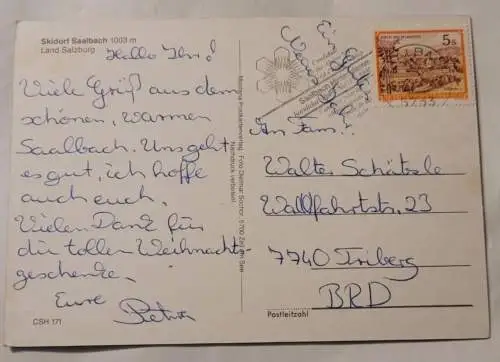 Skidorf Saalbach 1003 m
Land Salzburg
Hallo Ihr!
Viele Grüße aus dem
schönen, warmen
Saalbach. Uns geht
es gut, ich hoffe
auch euch.
Vielen Dank für
die tollen Weihnachts-
geschenke.
Eure
Petra
CSH 171
Nachdruck verboten!
5 S
An Fam.
Walter Schätzle
Wallfahrtstr. 23
7740 Triberg
BRD
Postleitzahl